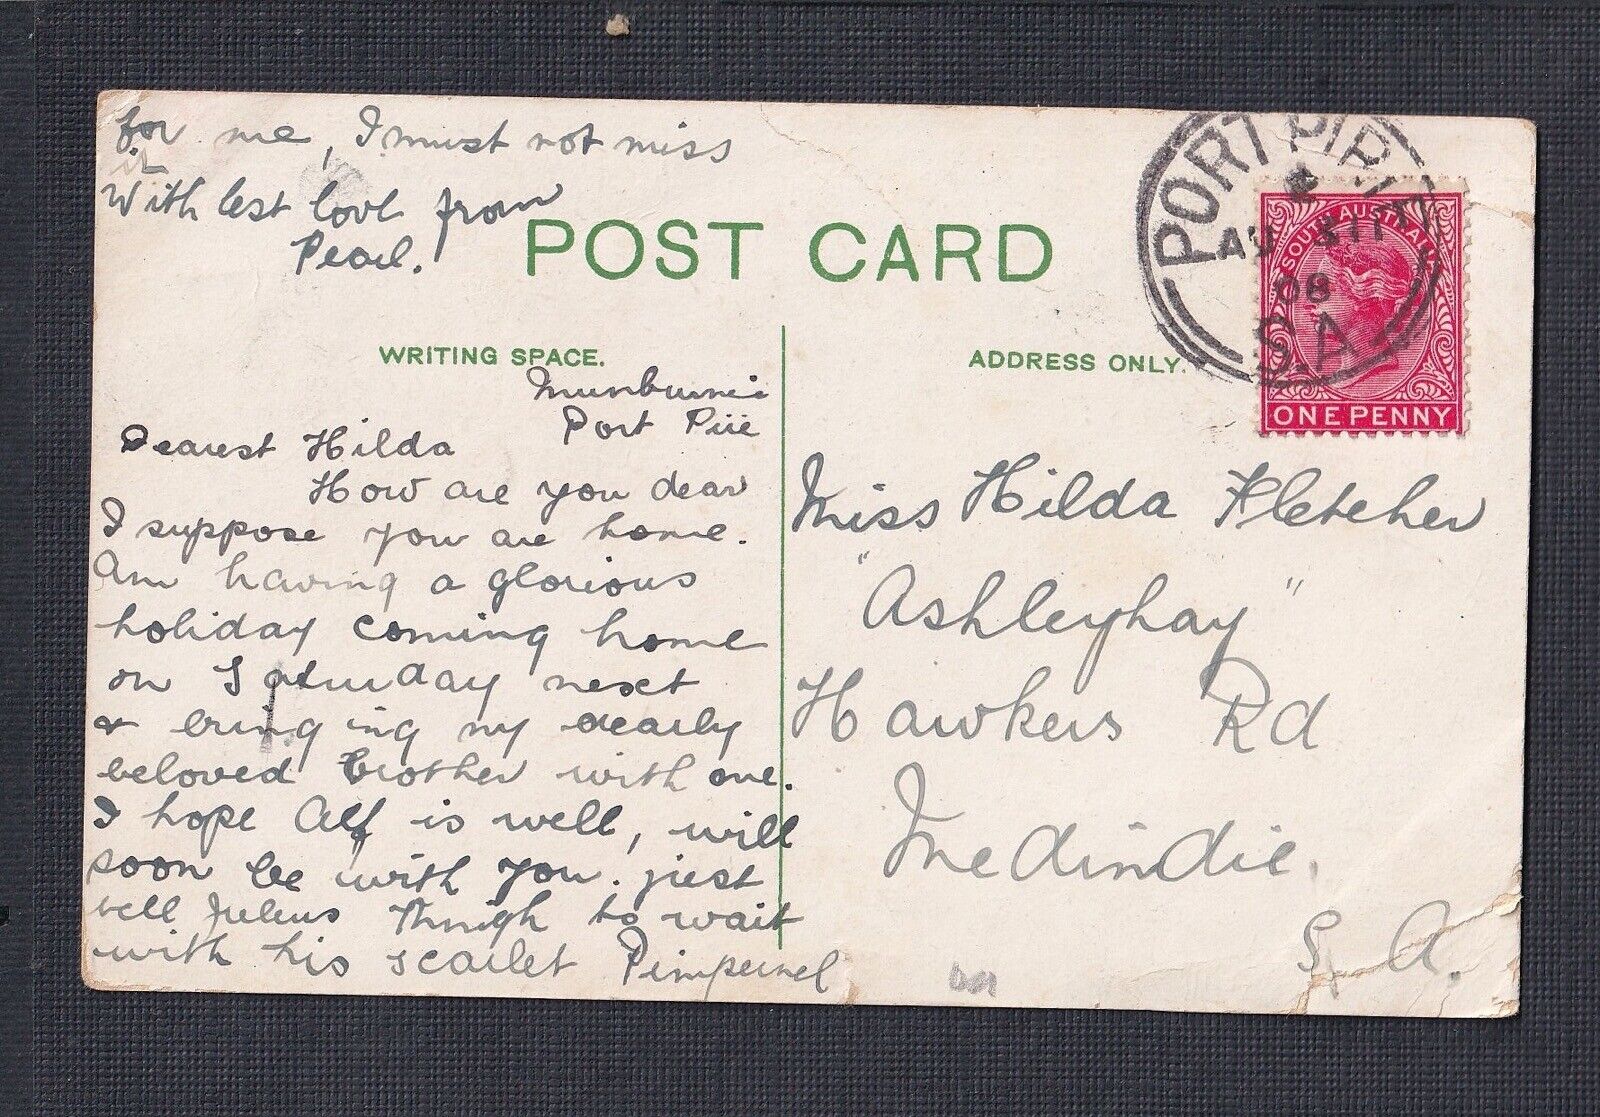 POST CARD
WRITING SPACE.
ADDRESS ONLY.
PORT PIRIE
AU 31
08
S.A
SOUTH AUSTRALIA
ONE PENNY
Port Pirie
Dearest Hilda
How are you dear
I suppose you are home.
Am having a glorious
holiday coming home
on Saturday next
& bringing my dearly
beloved brother with me.
I hope Alf is well, will
soon be with you. just
tell Julius to wait
with his scarlet Pimpernel
for me, I must not miss
it
With best love from
Pearl.
Miss Hilda Fletcher
"Ashleyhay"
Hawkers Rd
Medindie.
S. A.